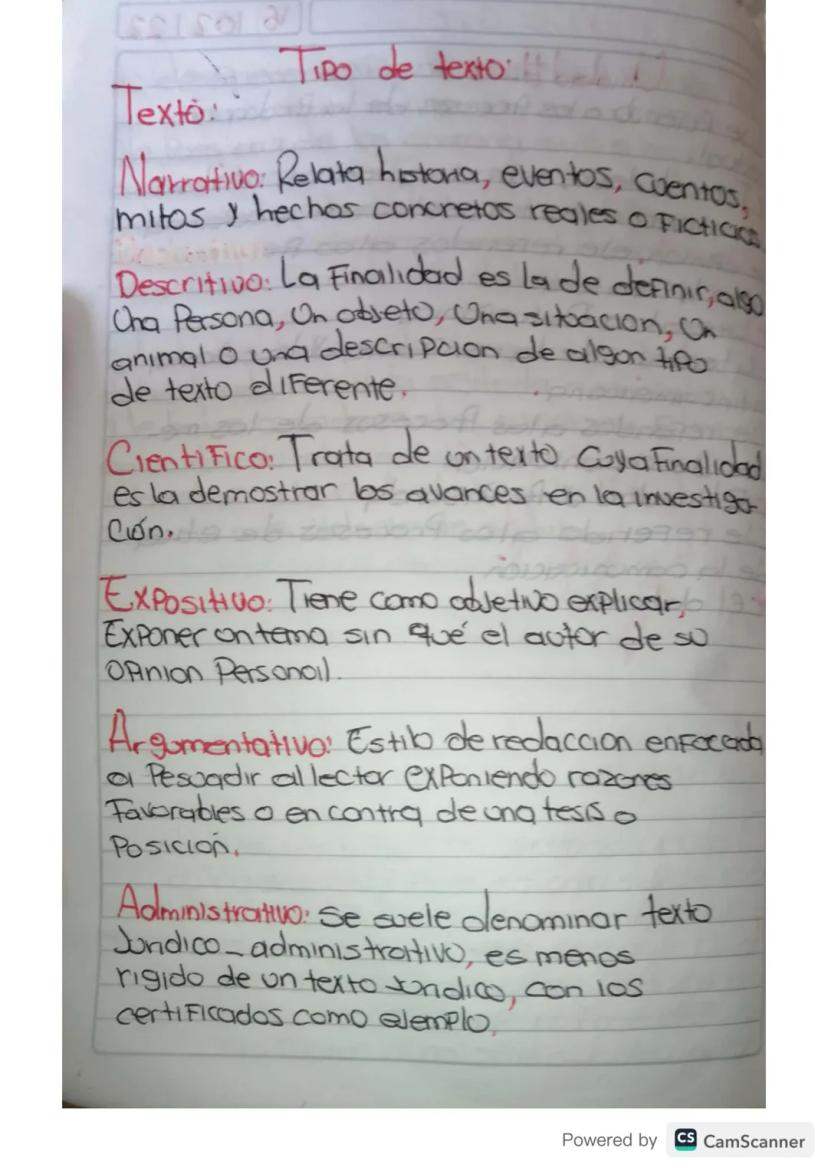 Tipo de texto:
Texto:
Narrativo: Relata historia, eventos, cuentos,
mitos y hechos concretos reales o Ficticios
Descritivo: La Finalidad es la de definir, algo
Una Persona, Un objeto, Una situacion, Un
animal o una descripcion de algun tipo
de texto diferente.
Cientifico: Trata de un texto Cuya Finalidad
es la demostrar los avances en la investiga-
ción.
Expositivo: Tiene como objetivo explicar,
Exponer un tema sin qué el autor de su
opinion Personal.
Argumentativo: Estilo de redaccion enfocada
a Pesuadir al lector exponiendo razones
Favorables o en contra de una tesis o
Posición.
Administrativo: Se suele denominar texto
Juridico - administrativo, es menos
rigido de un texto Juridico, con los
certificados como ejemplo.
Powered by CS CamScanner